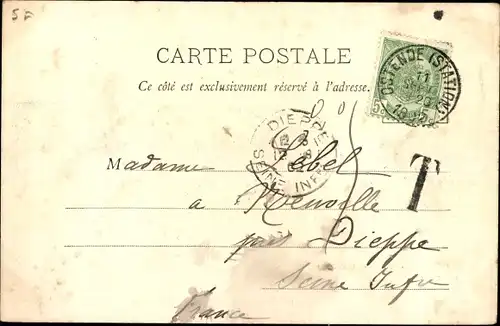 5F
CARTE POSTALE
Ce côté est exclusivement réservé à l'adresse.
5
OSTENDE (STATION)
11
1905
DIEPPE
SEINE INFRE
T
Madame Lebel
a Neuville
par Dieppe
Seine Infre
France